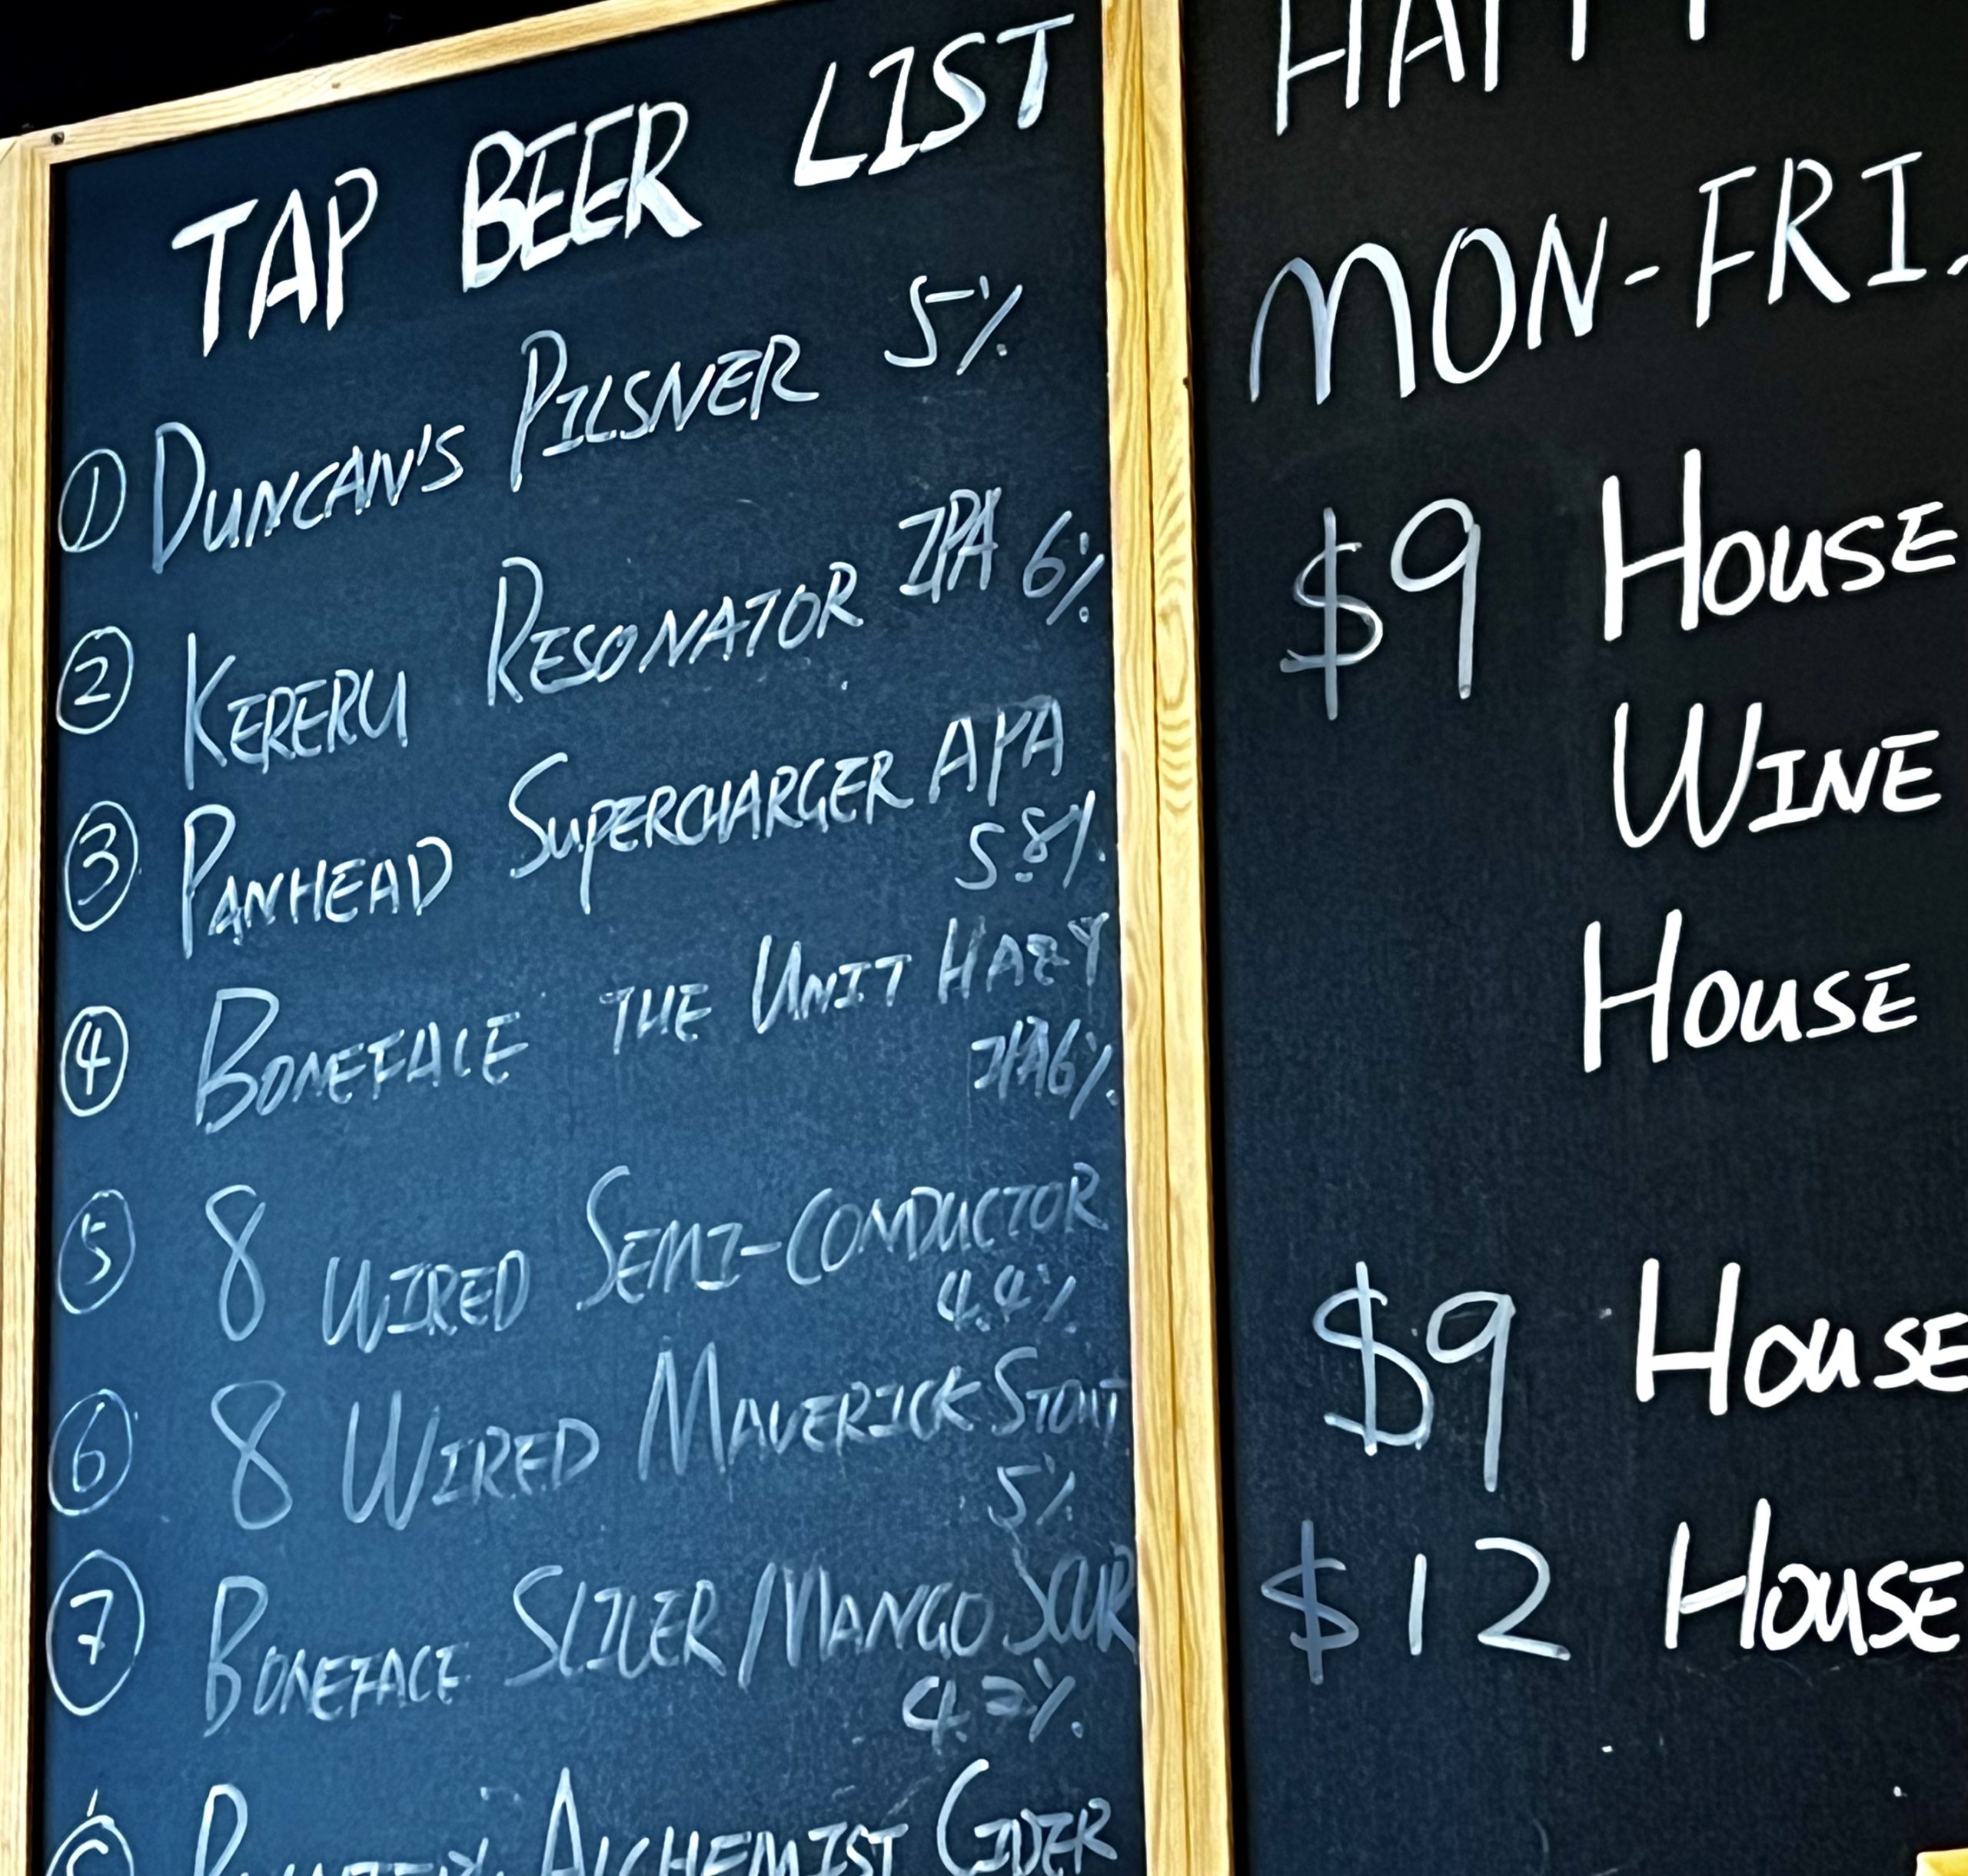 TAP BEER LIST
1 DUNCAN'S PILSNER 5%
2 KERERU RESONATOR IPA 6%
3 PANHEAD SUPERCHARGER APA
5.8%
4 BONEFACE THE UNIT HAZY
IPA 6%
5 8 WIRED SEMI-CONDUCTOR
4.4%
6 8 WIRED MAVERICK STOUT
5%
7 BONEFACE /MANGO SOUR
4.2%
ALCHEMIST CIDER
MON-FRI.
$9 HOUSE
WINE
HOUSE
$9 HOUSE
$12 HOUSE